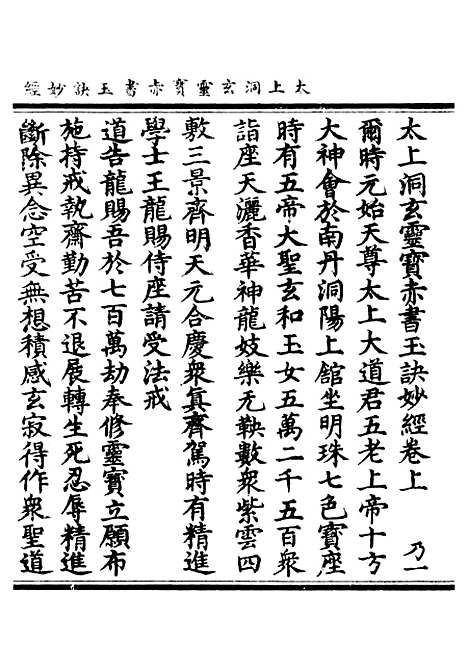 太上洞玄靈寶赤書玉訣妙經
太上洞玄靈寶赤書玉訣妙經卷上 乃一
爾時元始天尊太上大道君五老上帝十方
大神會於南丹洞陽上館坐明珠七色寶座
時有五帝大聖玄和玉女五萬二千五百衆
詣座天灑香華神龍妓樂无鞅數衆紫雲四
敷三景齊明天元合慶衆真齊駕時有精進
學士王龍賜侍座請受法戒
道告龍賜吾於七百萬劫奉修靈寶立願布
施持戒執齋勤苦不退展轉生死忍辱精進
斷除異念空受無想積感玄寂得作衆聖道